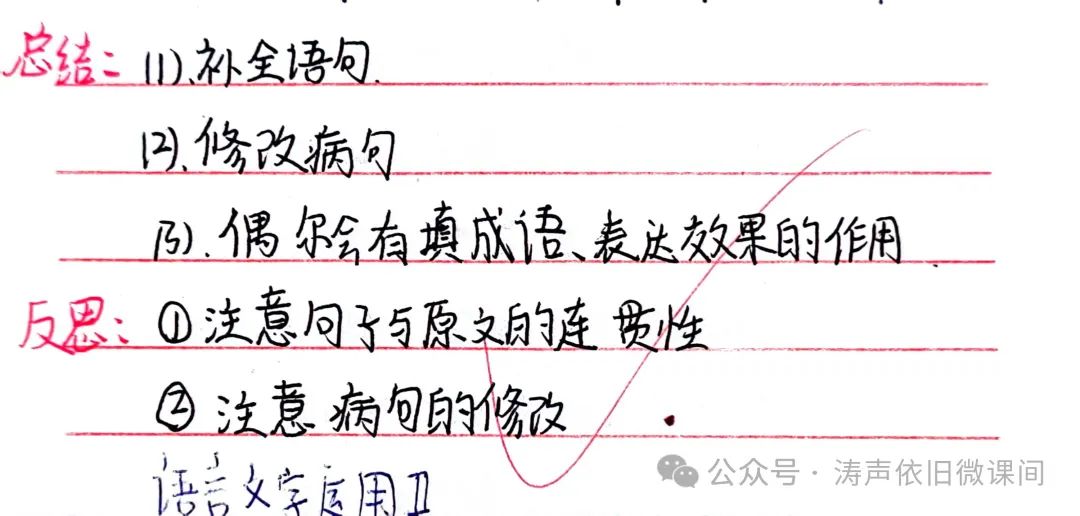 总结：(1)、补全语句.
(2)、修改病句
(3)、偶尔会有填成语、表达效果的作用.
反思：①注意句子与原文的连贯性
②注意病句的修改
语言文字运用Ⅱ
公众号·涛声依旧微课间